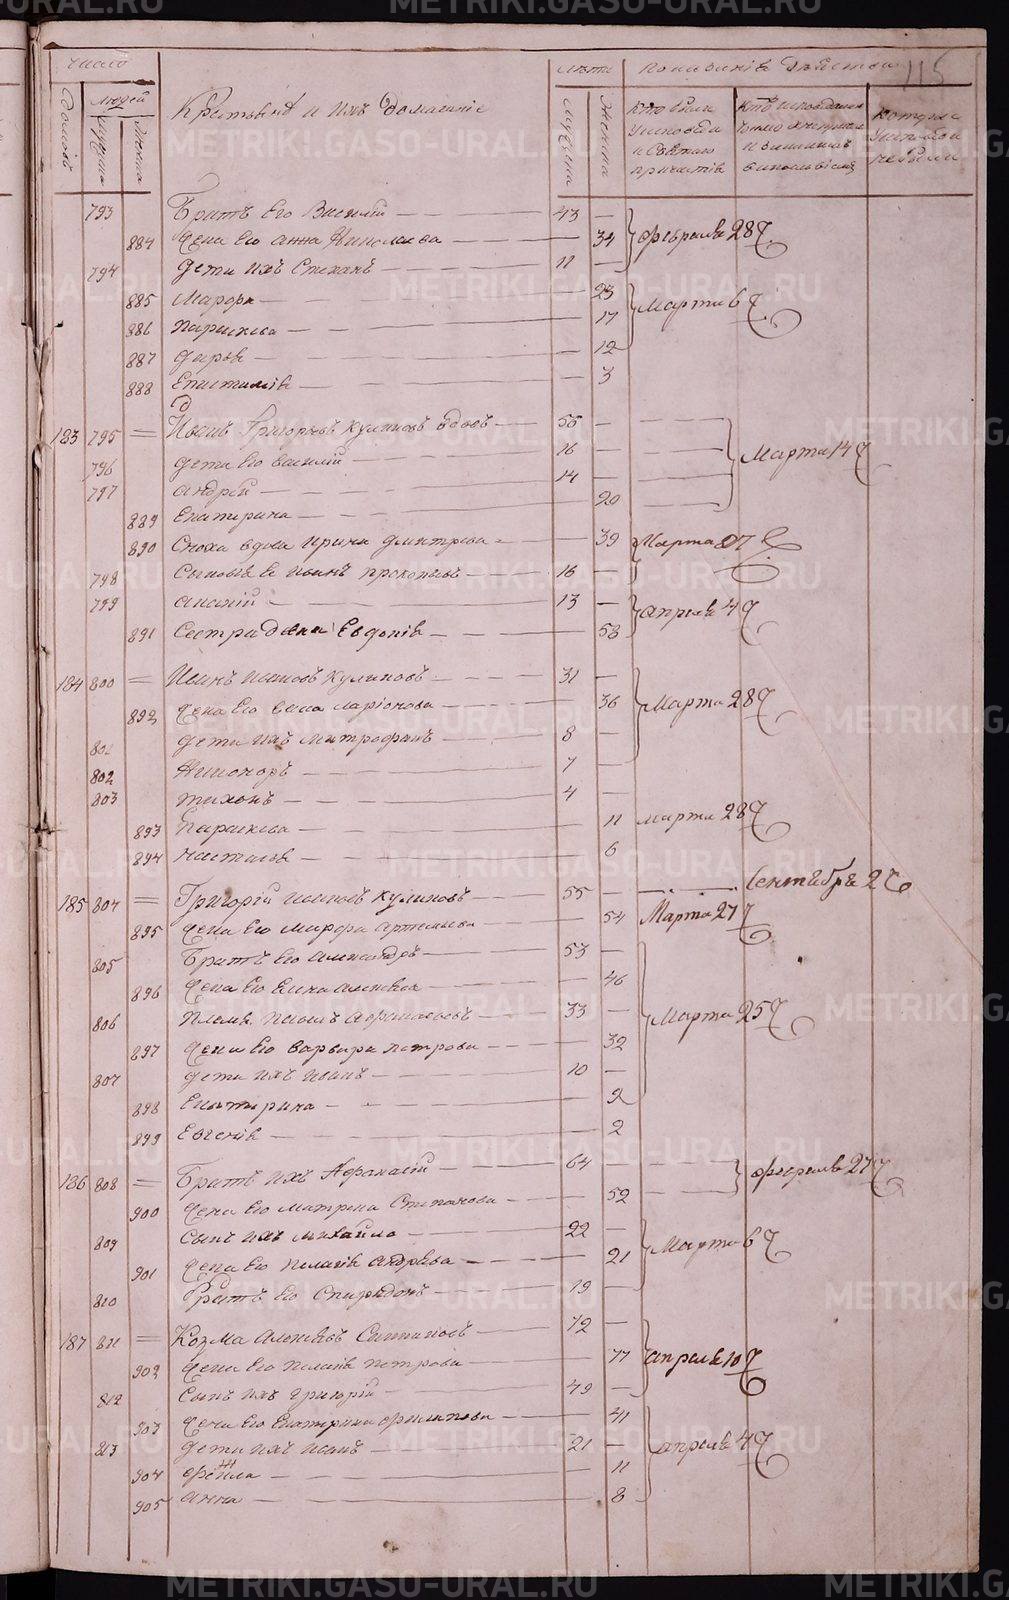 115
Число
Лѣта
Показанiе действа
Домовъ
Людей
Мужеска
Женска
Крестьяне и ихъ домашнiе
Мужеска
Женска
Кто были
у исповеди
и святаго
причастiя
Кто исповедались
токмо а не причаст
и за какимъ
винословiемъ
Которые
у исповеди
не были
793 Братъ его Василiй 43
884 Жена его Анна Николаева 34 Февраля 28 ч
794 Дети ихъ Степанъ 11
885 Марфа 23
886 Параскева 17 Марта 6 ч
887 Дарья 12
888 Епистимiя 3
183 795 Иванъ Григорьевъ Куликовъ вдовъ 56
796 Дети его Василiй 16 Марта 14 ч
797 Андрей 14
889 Екатерина 20
890 Сноха вдова Ирина Дмитрева 39 Марта 27
798 Сыновья ее Иванъ Прокопьевъ 16
799 Ананiй 13 Апреля 4 ч
891 Сестра девка Евдокiя 53
184 800 Иванъ Исаковъ Куликовъ 31
892 Жена его Ларiонова 36 Марта 28 ч
801 Дети ихъ Митрофанъ 8
802 Никоноръ 7
803 Тихонъ 4
893 Параскева 11 Марта 28 ч
894 Настасья 6
185 804 Григорiй Исаковъ Куликовъ 55 Сентября 2
895 Жена его Марфа Артемьева 54 Марта 27 ч
805 Братъ его Александръ 53
896 Жена его Елена Алексеева 46
806 Племя. Иванъ Афанасьевъ 33 Марта 25 ч
897 Жена его Варвара Петрова 32
807 Дети ихъ Иванъ 10
898 Екатерина 9
899 Евгенiя 2
186 808 Братъ ихъ Афанасiй 64 Февраля 27 ч
900 Жена его Матрена Степанова 52
809 Сынъ ихъ Михайло 22
901 Жена его Пелагiя Андреева 21 Марта 6 ч
810 Братъ его Спиридонъ 19
187 811 Козма Алексеевъ 72
902 Жена его Пелагiя Петрова 77 Апреля 10 ч
812 Сынъ ихъ Григорiй 49
903 Жена его Екатерина Филипова 41
813 Дети ихъ Иванъ 21 Апреля 4 ч
904 Фекла 11
905 Анна 8
METRIKI.GASO-URAL.RU